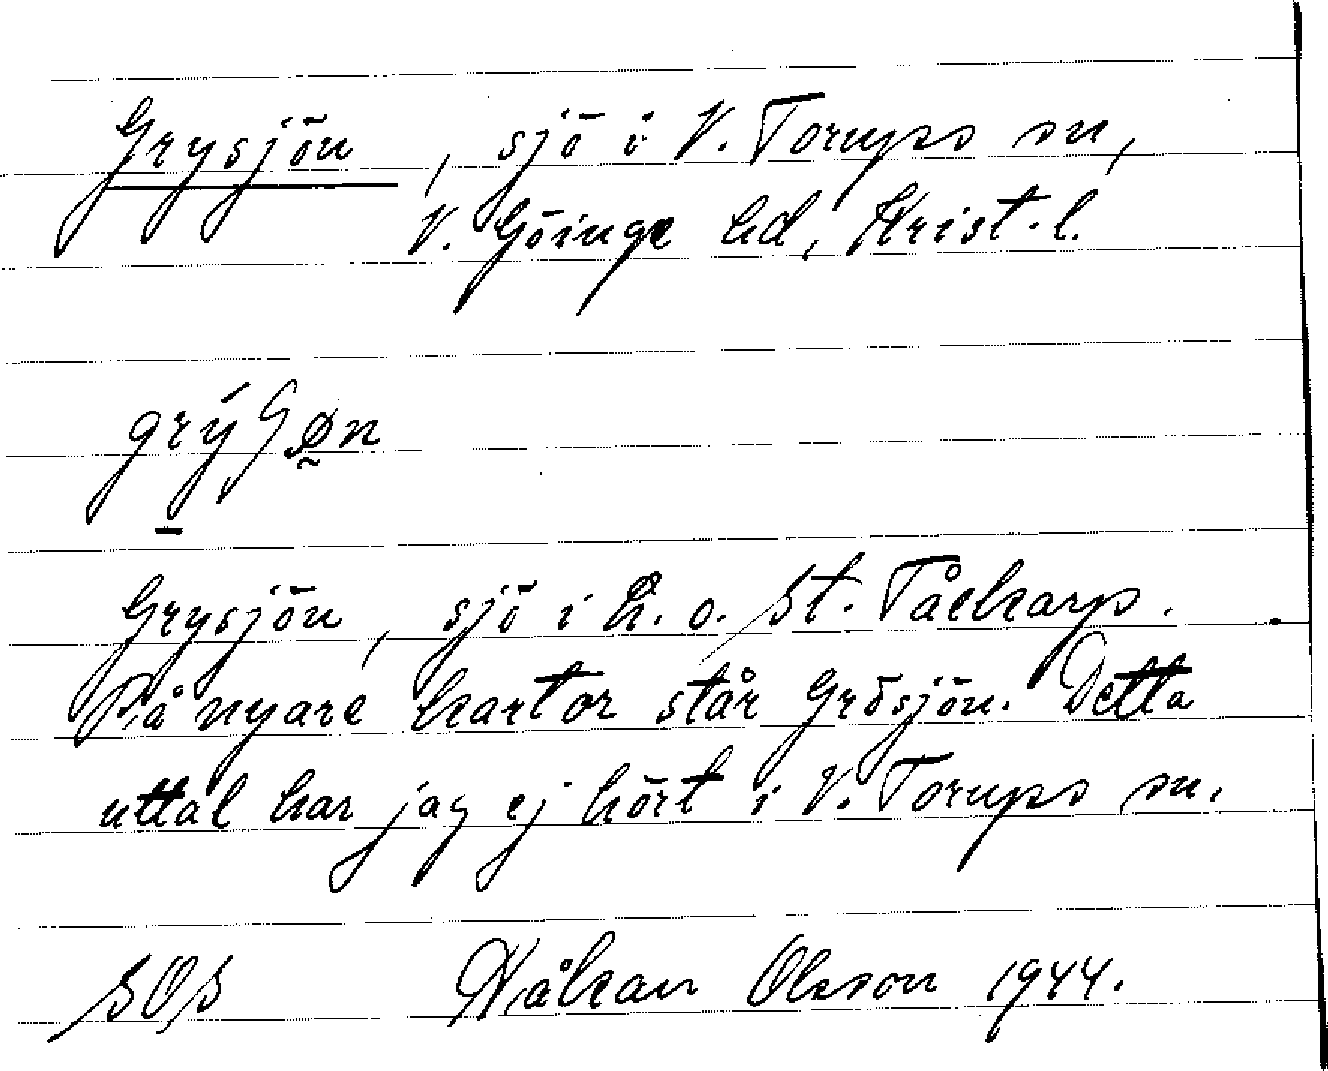 Grysjön, sjö i V. Torups sn,
V. Göinge hd, Krist. l.
Grysjön, sjö i h. o. St. Tåckarp.
På nyare kartor står Grösjön. Detta
uttal har jag ej hört i V. Torups sn.
SOS Håkan Olsson 1944.